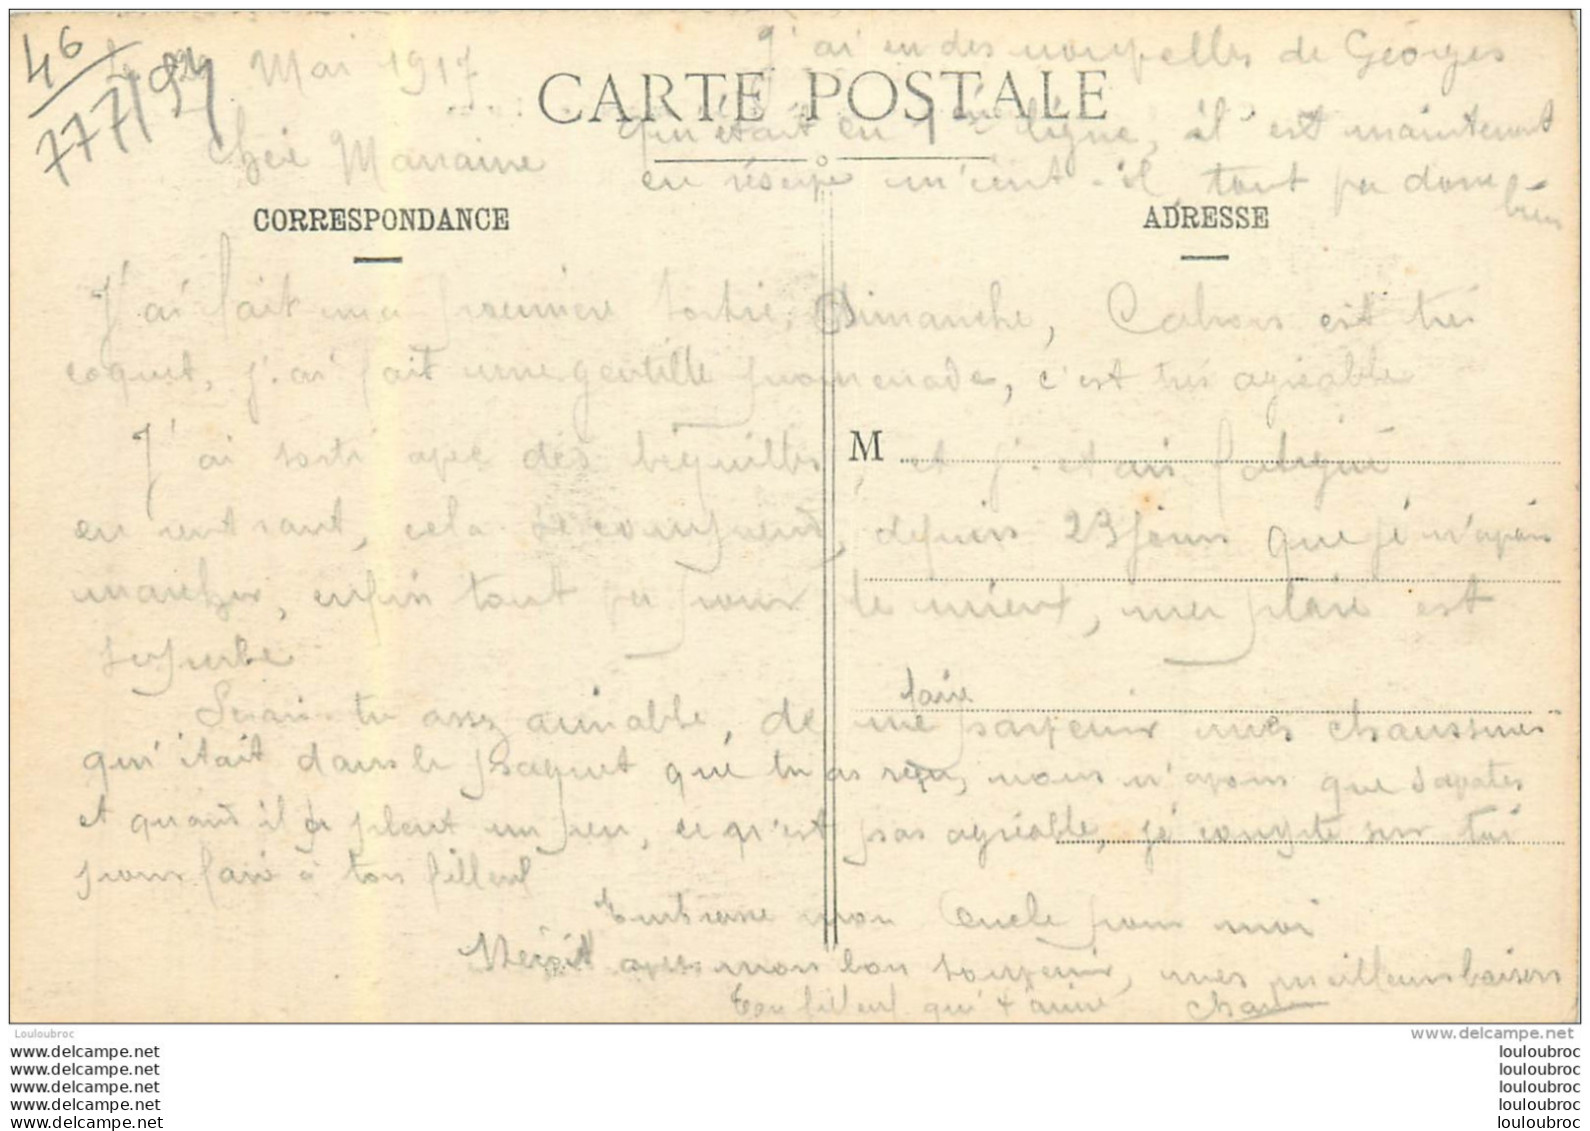 46
777/94
Mai 1917
Chère Marraine
CARTE POSTALE
CORRESPONDANCE
ADRESSE
J'ai fait ma première sortie, Dimanche, Cahors est très
coquet, j'ai fait une gentille promenade, c'est très agréable
J'ai sorti avec des béquilles, et j'étais fatigué
M
en rentrant, cela se comprend, depuis 23 jours que je n'avais
marcher, enfin tout va pour le mieux, ma plaie est
superbe
Serais-tu assez aimable, de me faire parvenir mes chaussures
qu'était dans le paquet que tu as reçu, nous n'avons que savates
et quand il a pleut un peu, ce n'est pas agréable, je compte sur toi
pour faire à ton filleul
Embrasse mon Oncle pour moi
Reçoit avec mon bon souvenir, mes meilleurs baisers
Ton filleul qui t'aime
J'ai eu des nouvelles de Géorges
qu'était en 1ère ligne, il est maintenant
en réserve m'écrit-il, tout va donc
bien
Louloubroc
www.delcampe.net
www.delcampe.net
www.delcampe.net
www.delcampe.net
www.delcampe.net
www.delcampe.net
louloubroc
louloubroc
louloubroc
louloubroc
louloubroc